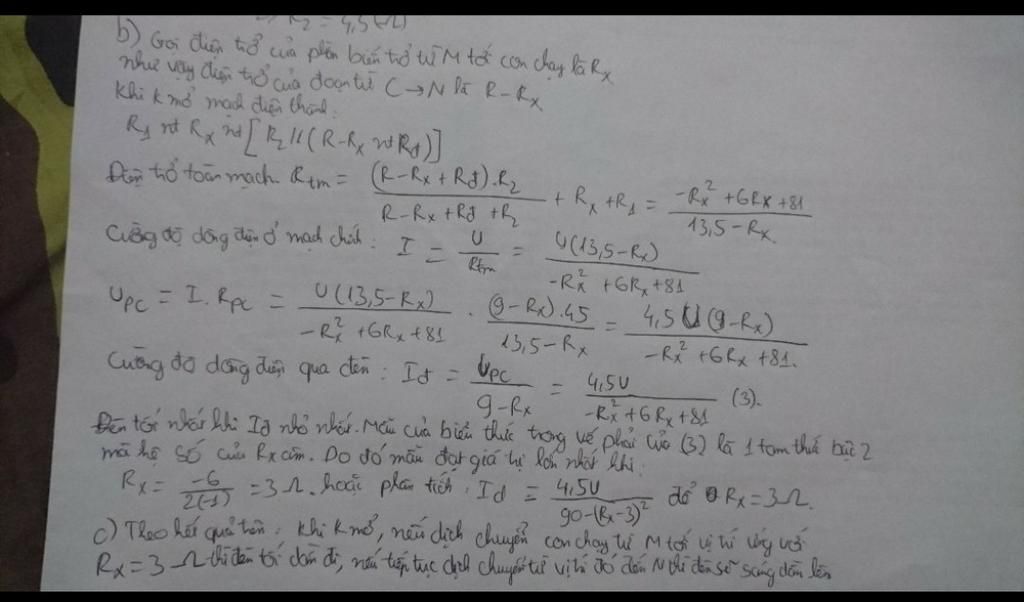 => R2 = 4,5 (Ω)
b) Gọi điện trở của phần biến trở từ M tới con chạy là Rx
như vậy điện trở của đoạn từ C → N là R - Rx
Khi k mở mạch điện thành:
R1 nt Rx nt [R2 // (R - Rx nt Rđ)]
Điện trở toàn mạch. Rtm = (R - Rx + Rđ).R2 / (R - Rx + Rđ + R2) + Rx + R1 = (-Rx² + 6Rx + 81) / (13,5 - Rx)
Cường độ dòng điện ở mạch chính: I = U / Rtm = U(13,5 - Rx) / (-Rx² + 6Rx + 81)
UPC = I. RPC = U(13,5 - Rx) / (-Rx² + 6Rx + 81) . (9 - Rx).45 / (13,5 - Rx) = 4,5U(9 - Rx) / (-Rx² + 6Rx + 81).
Cường độ dòng điện qua đèn: Iđ = UPC / (9 - Rx) = 4,5U / (-Rx² + 6Rx + 81) (3).
Đèn tối nhất khi Iđ nhỏ nhất. Mẫu của biểu thức trong vế phải của (3) là 1 tam thức bậc 2
mà hệ số của Rx âm. Do đó mẫu đạt giá trị lớn nhất khi:
Rx = -6 / 2(-1) = 3Ω. hoặc phân tích: Iđ = 4,5U / (90 - (Rx - 3)²) để Rx = 3Ω.
c) Theo kết quả trên: Khi k mở, nếu dịch chuyển con chạy từ M tới vị trí ứng với
Rx = 3Ω thì đèn tối dần đi, nếu tiếp tục dịch chuyển từ vị trí đó đến N thì đèn sẽ sáng dần lên